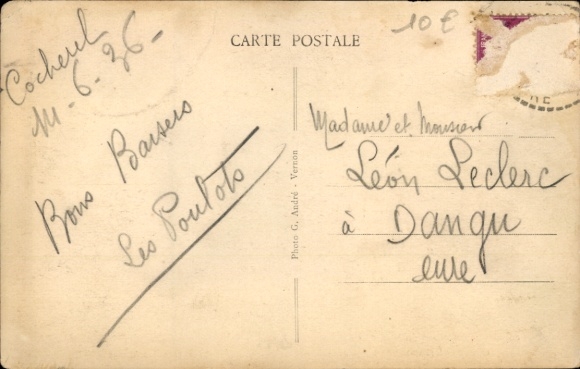 CARTE POSTALE
10 €
Cocherel
111-6-36-
Bons Baisers
Les Poulots
Photo G. André - Vernon
Madame et Monsieur
Léon Leclerc
à Dangu
eure